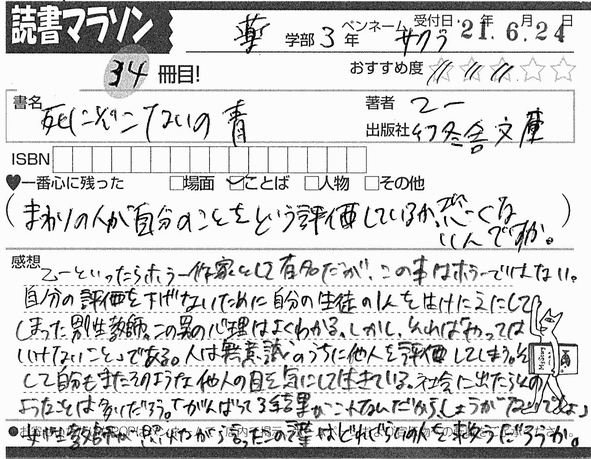 読書マラソン
薬 学部 3 年 ペンネーム サクラ 受付日 '21.年 6.月 24日
34 冊目! おすすめ度 ☆☆☆☆☆
書名 死にぞこないの青 著者 乙一
出版社 幻冬舎文庫
ISBN
♥一番心に残った □場面 ☑ことば □人物 □その他
(まわりの人が自分のことをどういう評価しているか、恐くな
いんですか。)
感想 乙一といったらホラー作家として有名だが、この本はホラーではない。
自分の評価を下げないために自分の生徒の1人を生けにえにして
しまった男性教師。この男の心理はよくわかる。しかし、それは「やっては
いけないこと」である。人は無意識のうちに他人を評価してしまう。そ
して自分もまたそのような他人の目を気にして生きている。社会に出たら
ようなことは多いだろう。「がんばってる結果がこれなんだからしょうがないでしょ」
女性教師が 言ったこの はどれぐらいの人を救うだろうか。